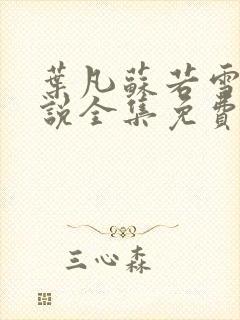 葉凡蘇若雪
說全集免費
三心森